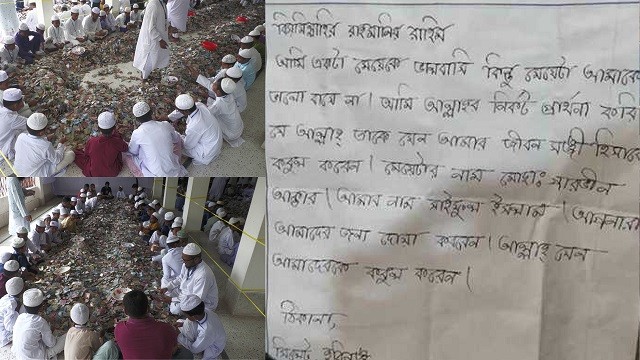 বিসমিল্লাহির রাহমানির রাহিম
আমি একটা মেয়েকে ভালবাসি কিন্তু মেয়েটা আমাকে
ভালো বাসে না। আমি আল্লাহর নিকট প্রার্থনা করি
যে আল্লাহ্ তাকে যেন আমার জীবন সঙ্গী হিসাবে
কবুল করেন। মেয়েটার নাম মোছাঃ পারভীন
আক্তার। আমার নাম সাইফুল ইসলাম। আপনারা
আমাদের জন্য দোয়া করবেন। আল্লাহ্ যেন
আমাদেরকে কবুল করেন।
ঠিকানা,